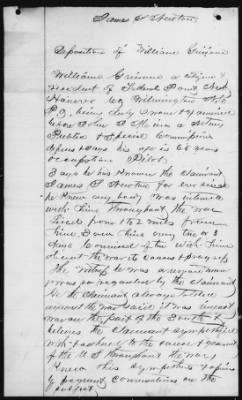 James S. Newton
Deposition of William Grissom
William Grissom a citizen &
resident of Federal Point, New
Hanover Co Wilmington State
N.C. being duly sworn & examined
before John S. a Notary
Public & Special Commissioner
deposes & says his age is 65 years
occupation Pilot.
Says he has known the claimant
James S Newton for ever since
he knew any body was intimate
with him throughout the war
lived from 1 to 2 miles from
him & saw him every two or 3
days Conversed often with him
about the war its causes & progress
The witness he was a union man
was so regarded by the claimant
the claimant always talked
against the war said it was
war on the part of the South &
believes the Claimant sympathized
with & adhered to the cause & government
of the U.S. throughout the war,
knew this sympathies & opinions
by frequent conversations on the
subject